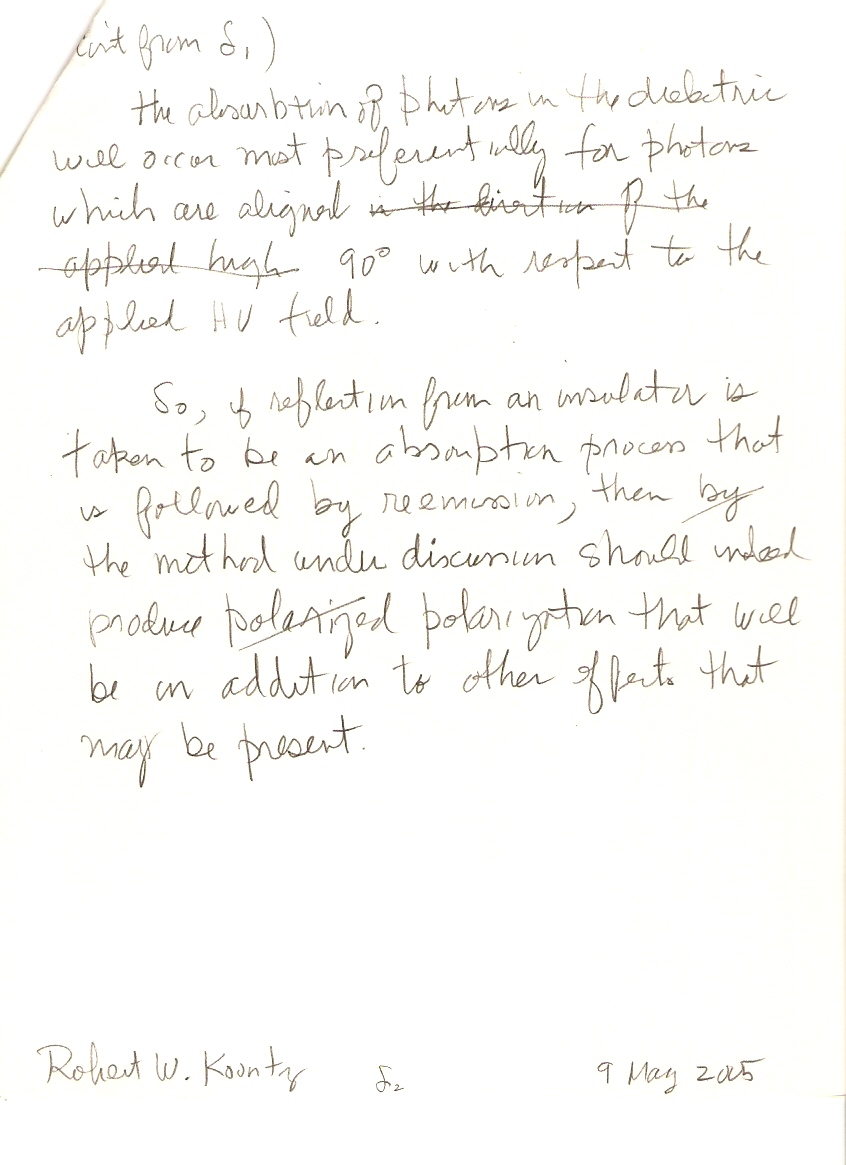 cont from δ₁)
the absorbtion of photons in the dielectric
will occur most preferentially for photons
which are aligned in the direction of the
applied high 90° with respect to the
applied HV field.
So, if reflection from an insulator is
taken to be an absorption process that
is followed by reemission, then by
the method under discussion should indeed
produce polarized polarization that will
be in addition to other effects that
may be present.
Robert W. Koontz δ₂ 9 May 2005